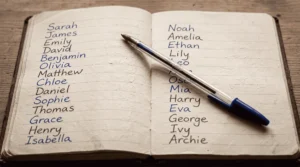 Sarah
James
Emily
David
Benjamin
Olivia
Matthew
Chloe
Daniel
Sophie
Thomas
Grace
Henry
Isabella
Noah
Amelia
Ethan
Lily
Mia
Harry
Eva
George
Ivy
Archie